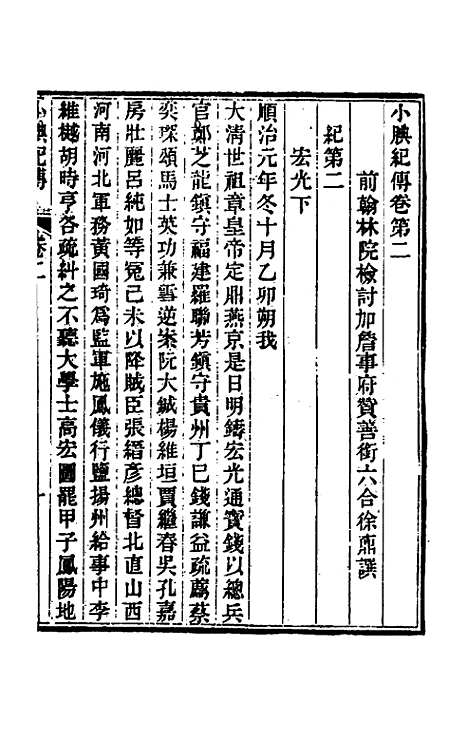 小腆紀傳卷第二
前翰林院檢討加詹事府贊善銜六合徐鼒譔
紀第二
宏光下
順治元年冬十月乙卯朔我
大清世祖章皇帝定鼎燕京是日明鑄宏光通寶錢以總兵
官鄭芝龍鎮守福建羅聯芳鎮守貴州丁巳錢謙益疏薦蔡
奕琛頌馬士英功兼雪逆案阮大鋮楊維垣賈繼春吳孔嘉
房壯麗呂純如等冤己未以降賊臣張縉彥總督北直山西
河南河北軍務黃國琦為監軍施鳳儀行鹽揚州給事中李
維樾胡時亨各疏糾之不聽大學士高宏圖罷甲子鳳陽地
小腆紀傳 卷二 一